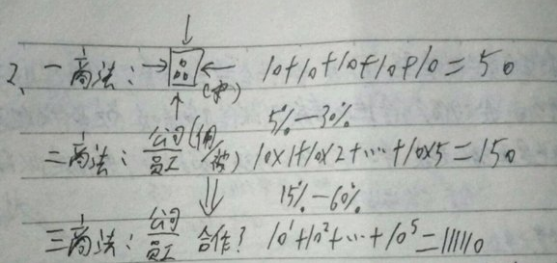 2、一商法: → ← 10+10+10+10+10=50
5%—30%
二商法: 公司 员工 10×1+10×2+…+10×5=150
15%—60%
三商法: 公司 员工 合作? 10¹+10²+…+10⁵=111110